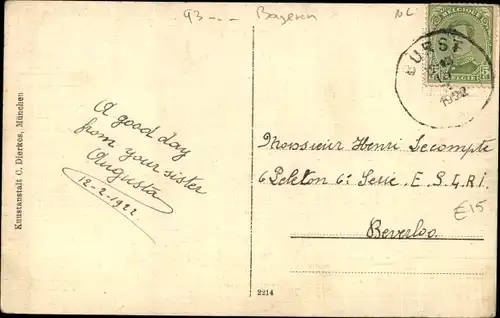 93---
Bayern
NL
BELGIQUE
BURST
1922
A good day
from your sister
Augusta
12-2-1922
Monsieur Henri Lecompte
6 Peleton 6e Serie. E.S.L.R.I.
Beverloo.
£15
Kunstanstalt C. Dierkes, München
2214